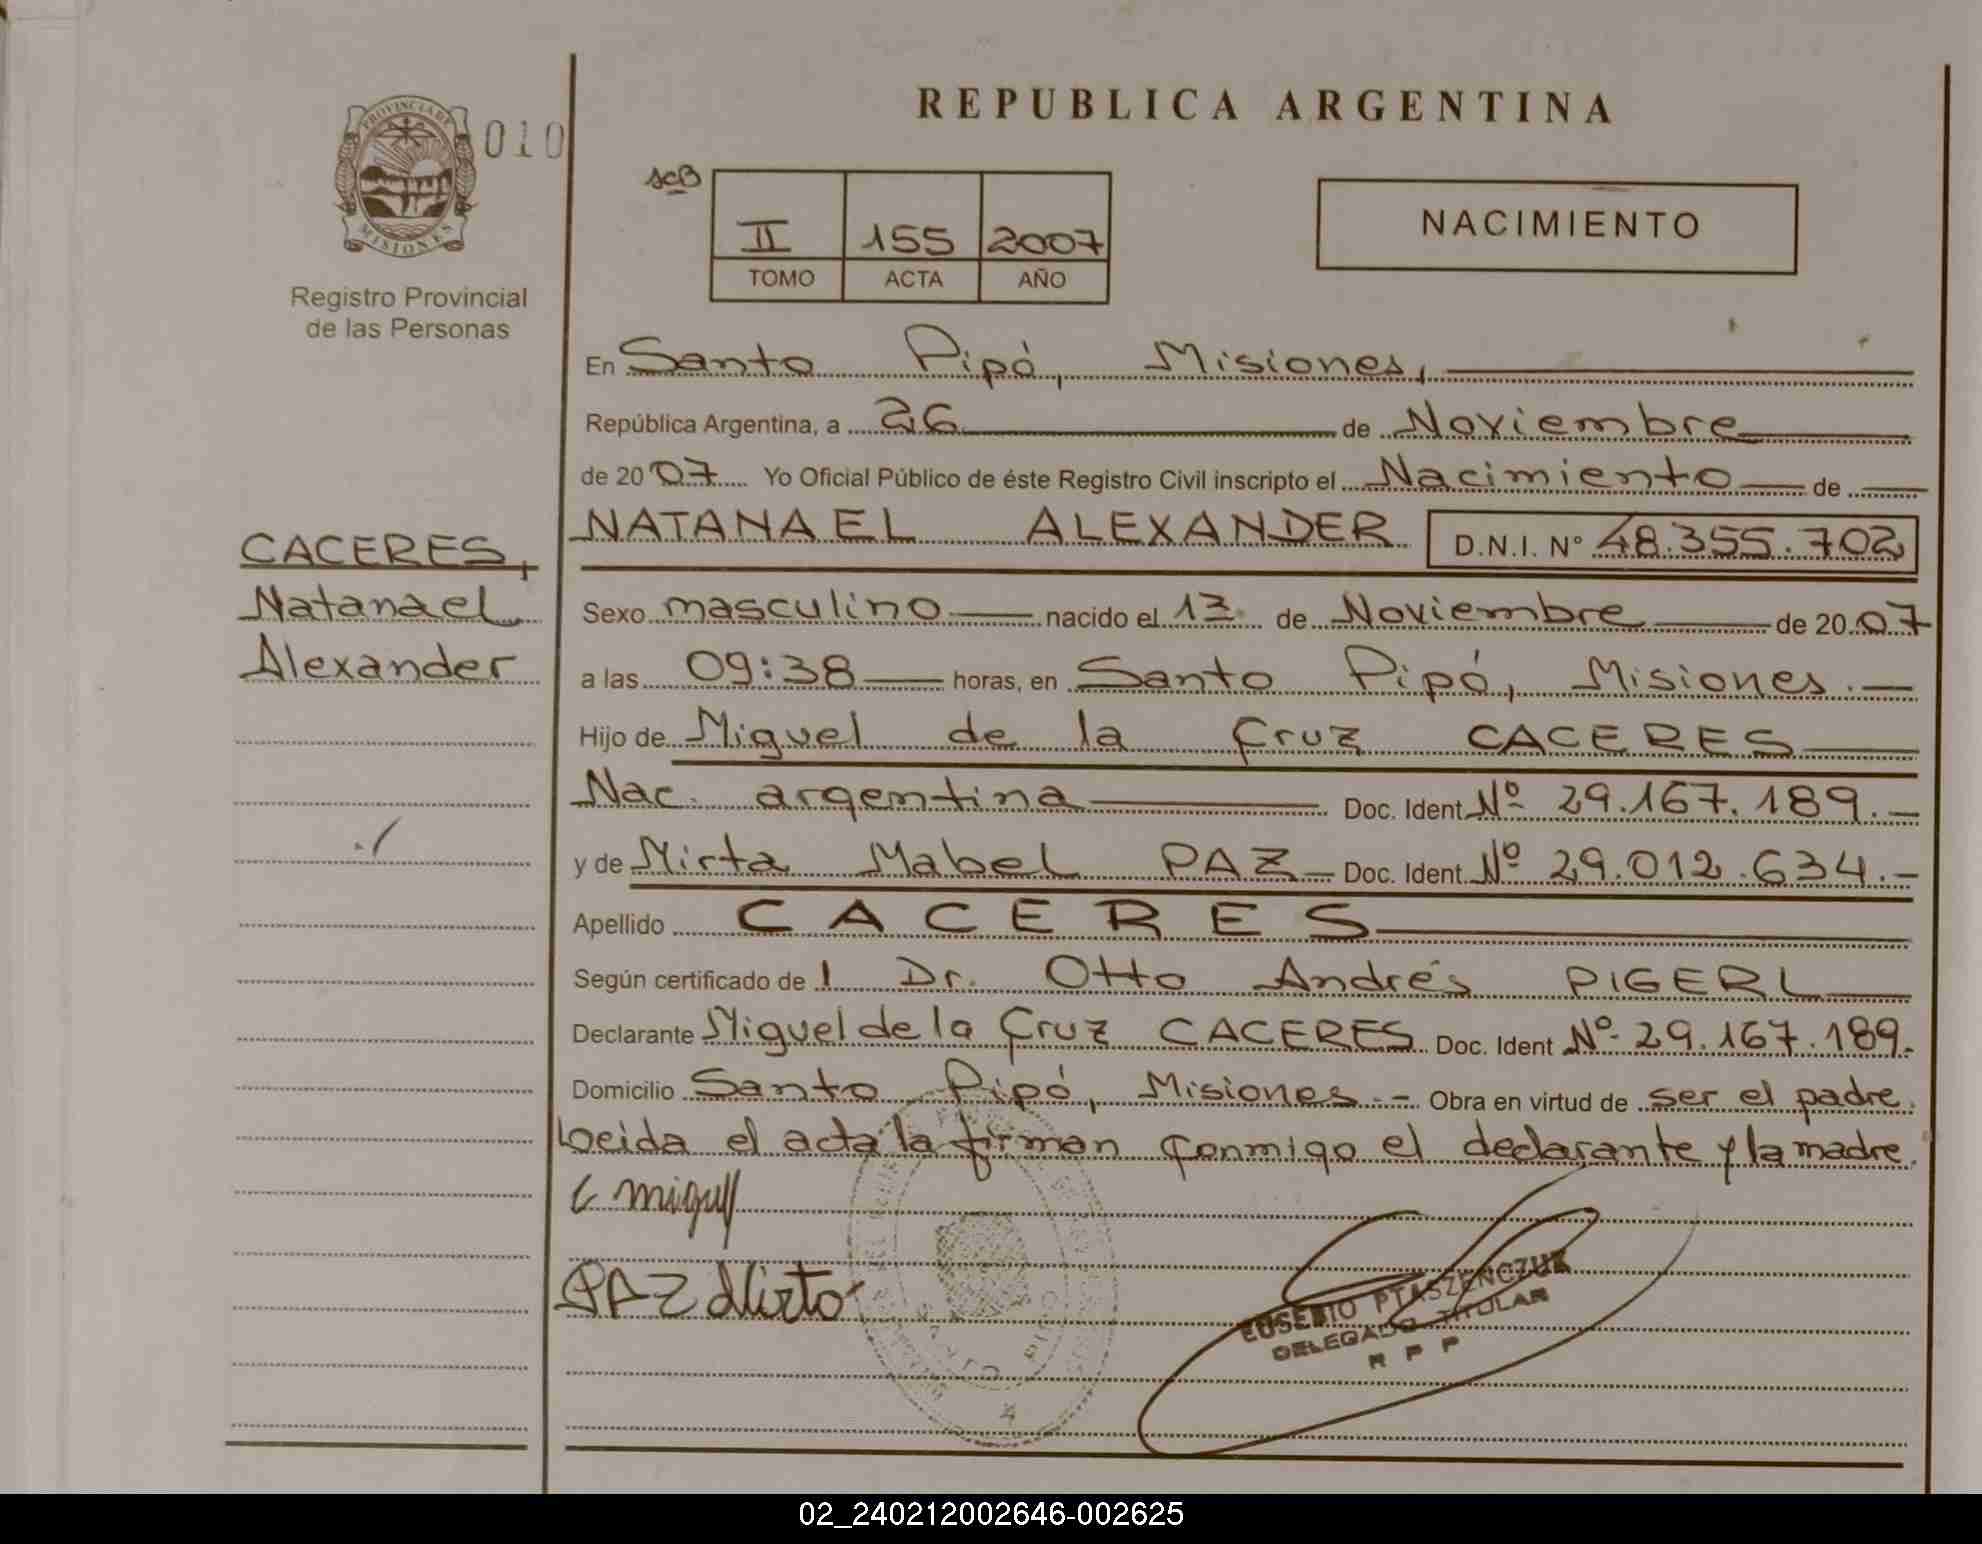 REPUBLICA ARGENTINA
PROVINCIA DE
MISIONES
010
Registro Provincial
de las Personas
II 155 2007
TOMO ACTA AÑO
NACIMIENTO
En Santo Pipó, Misiones,
República Argentina, a 26 de Noviembre
de 2007 Yo Oficial Público de éste Registro Civil inscripto el Nacimiento de
NATANAEL ALEXANDER D.N.I. N° 48.355.702
CACERES,
Natanael
Alexander
Sexo masculino nacido el 13 de Noviembre de 2007
a las 09:38 horas, en Santo Pipó, Misiones.-
Hijo de Miguel de la Cruz CACERES
Nac. argentina Doc. Ident. Nº 29.167.189.-
y de Mirta Mabel PAZ Doc. Ident. Nº 29.012.634.-
Apellido CACERES
Según certificado de l Dr. Otto Andrés PIGERL
Declarante Miguel de la Cruz CACERES Doc. Ident Nº 29.167.189.
Domicilio Santo Pipó, Misiones.- Obra en virtud de ser el padre.
Leida el acta la firman conmigo el declarante y la madre.
C miguel
PAZ Mirta
EUSEBIO PTASZENCZUK
DELEGADO TITULAR
R P P
02_240212002646-002625